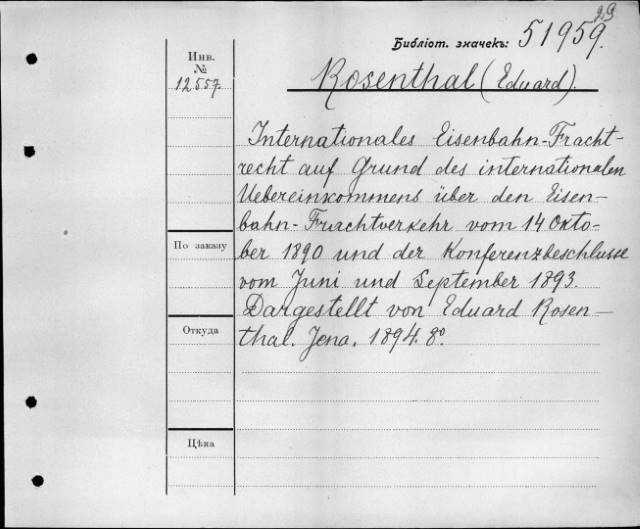 29
Библіот. значекъ: 51959.
Инв.
№
12557.
Rosenthal (Eduard).
Internationales Eisenbahn-Fracht-
recht auf Grund des internationalen
Uebereinkommens über den Eisen-
bahn-Frachtverkehr vom 14 Okto-
ber 1890 und der Konferenzbeschlusse
vom Juni und September 1893.
Dargestellt von Eduard Rosen-
thal. Jena. 1894. 8°.
По заказу
Откуда
Цѣна